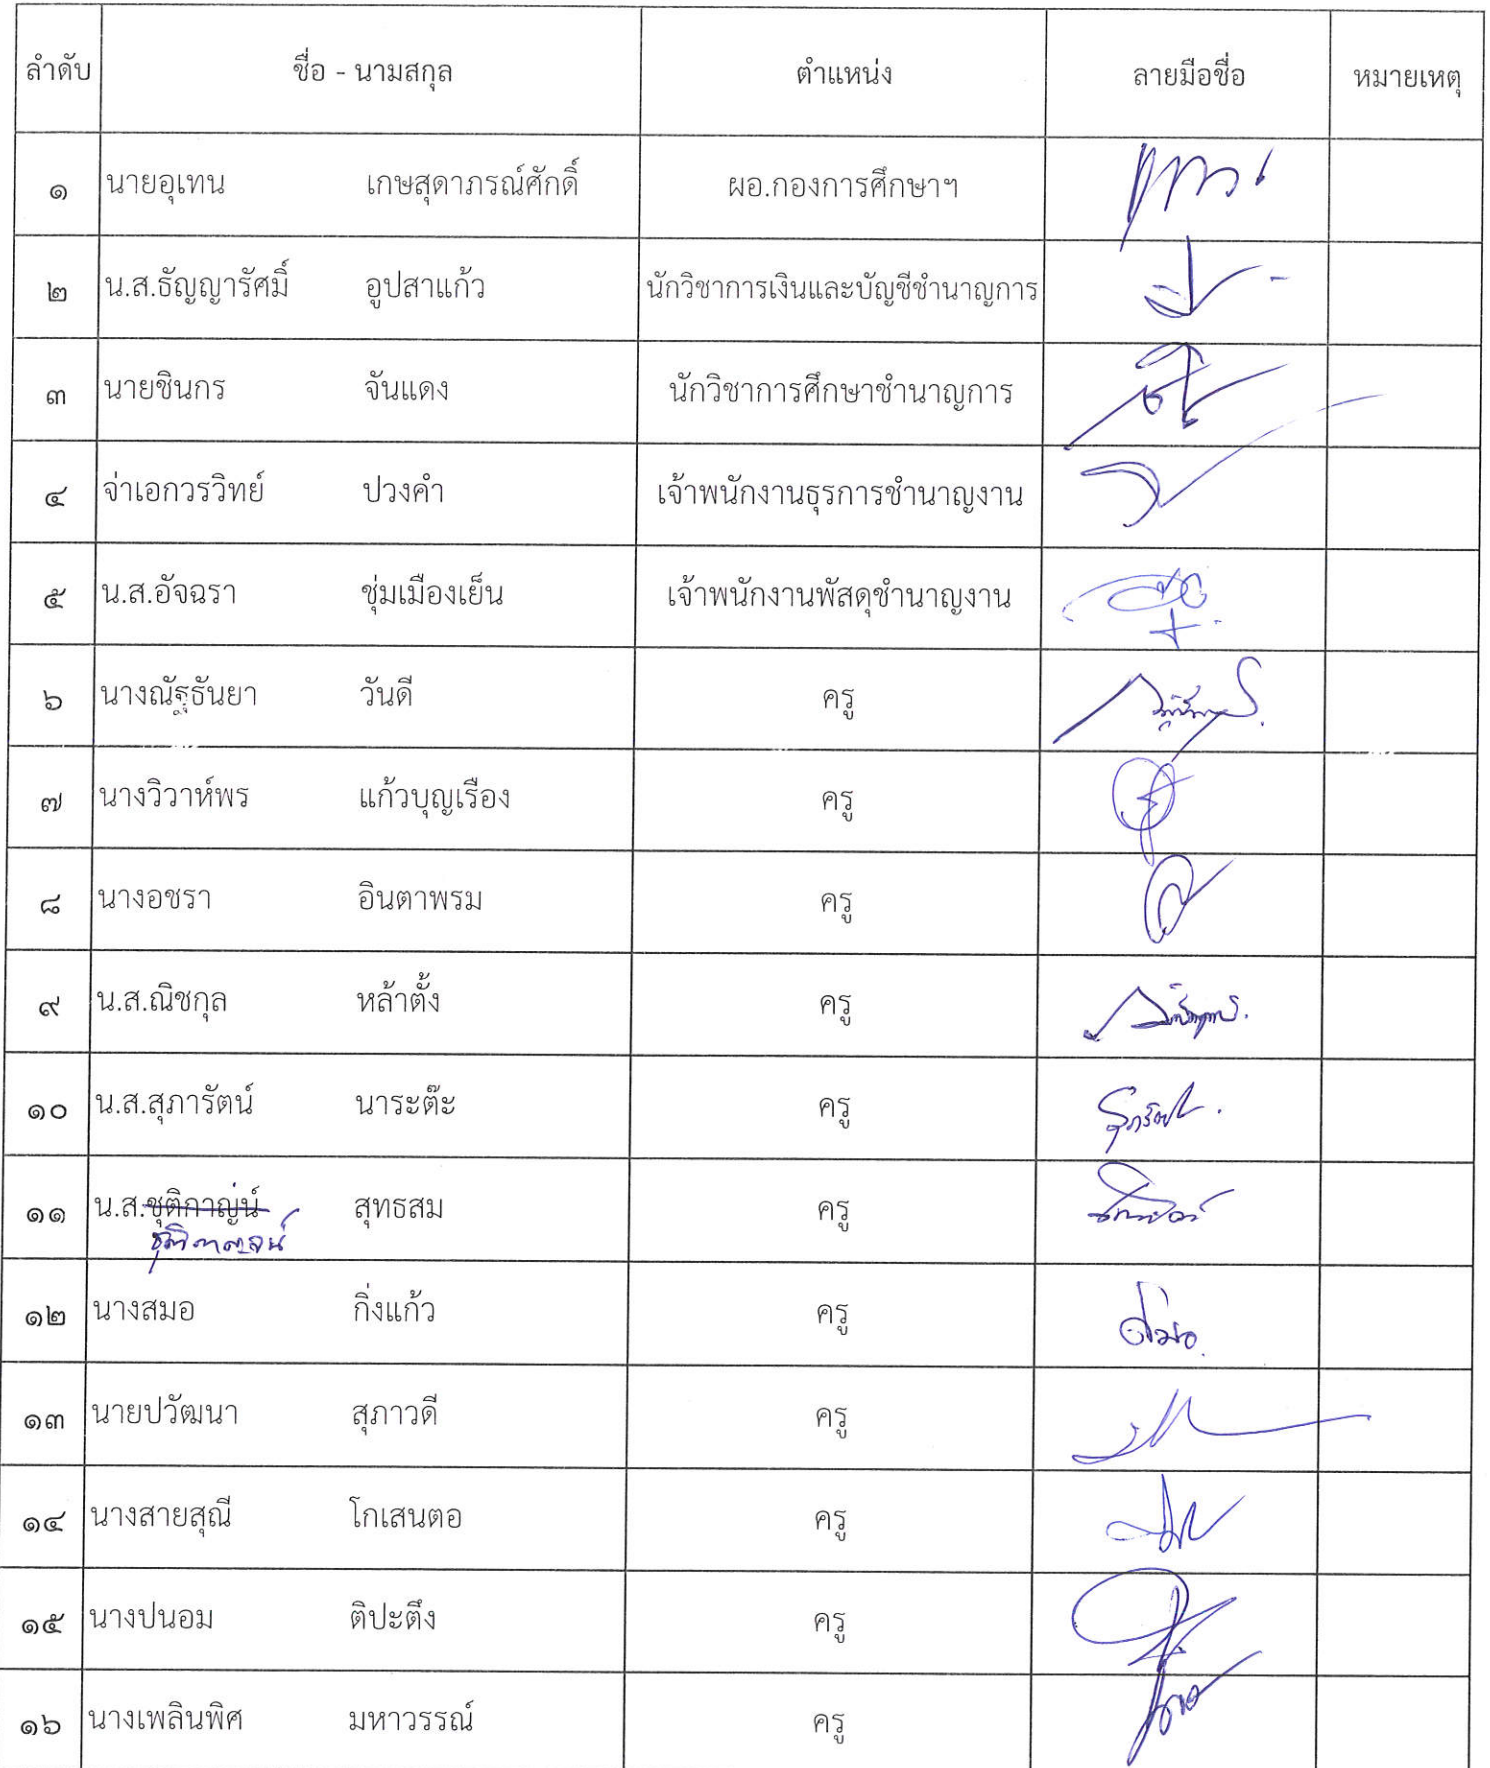 ลำดับ ชื่อ - นามสกุล ตำแหน่ง ลายมือชื่อ หมายเหตุ
๑ นายอุเทน เกษสุดาภรณ์ศักดิ์ ผอ.กองการศึกษาฯ
๒ น.ส.ธัญญารัศมิ์ อูปสาแก้ว นักวิชาการเงินและบัญชีชำนาญการ
๓ นายชินกร จันแดง นักวิชาการศึกษาชำนาญการ
๔ จ่าเอกวรวิทย์ ปวงคำ เจ้าพนักงานธุรการชำนาญงาน
๕ น.ส.อัจฉรา ชุ่มเมืองเย็น เจ้าพนักงานพัสดุชำนาญงาน
๖ นางณัฐธันยา วันดี ครู
๗ นางวิวาห์พร แก้วบุญเรือง ครู
๘ นางอชรา อินตาพรม ครู
๙ น.ส.ณิชกุล หล้าตั้ง ครู
๑๐ น.ส.สุภารัตน์ นาระต๊ะ ครู สุภารัตน์
๑๑ น.ส.ชุติกาญ่น์ สุทธสม ครู
ชุติกาญจน์
๑๒ นางสมอ กิ่งแก้ว ครู สมอ
๑๓ นายปวัฒนา สุภาวดี ครู
๑๔ นางสายสุณี โกเสนตอ ครู
๑๕ นางปนอม ติปะตึง ครู
๑๖ นางเพลินพิศ มหาวรรณ์ ครู